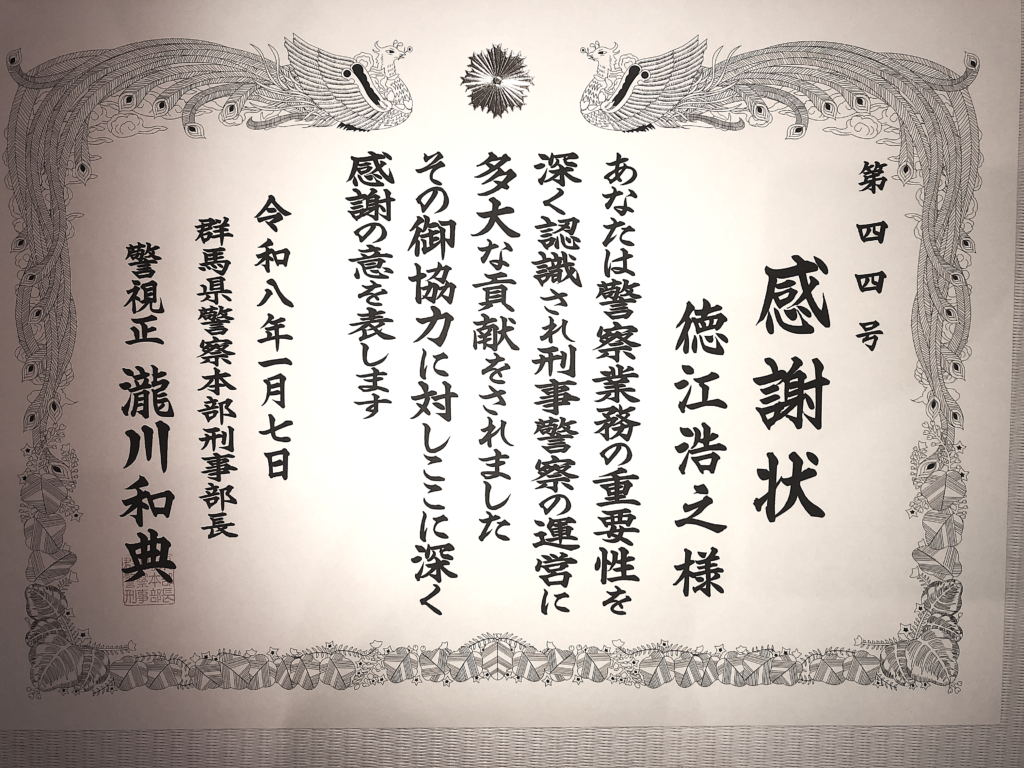 第四四号
感謝状
徳江浩之様
あなたは警察業務の重要性を
深く認識され刑事警察の運営に
多大な貢献をされました
その御協力に対しここに深く
感謝の意を表します
令和八年一月七日
群馬県警察本部刑事部長
警視正 瀧川和典